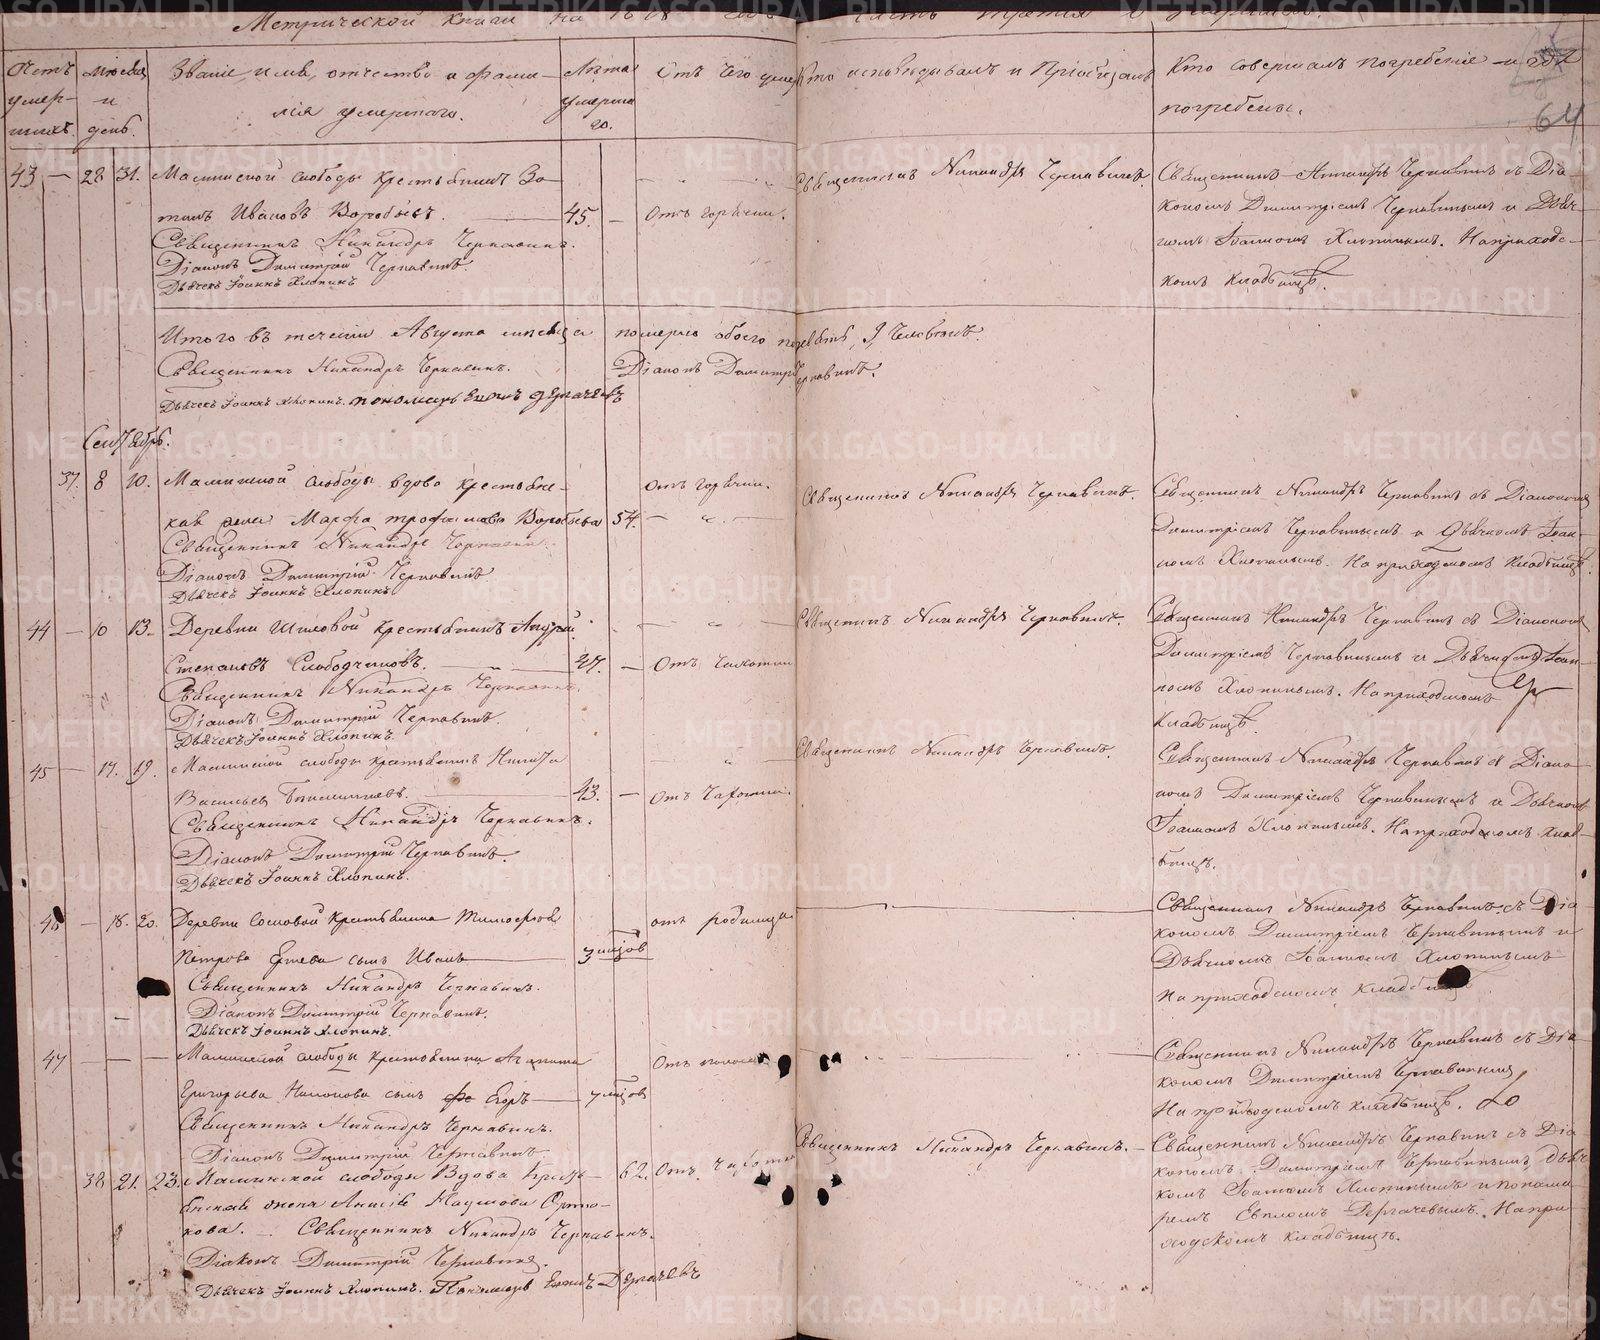 Метрической книги на 18 8 годъ часть третья о умершихъ.
64
Счетъ умер-шихъ.
Мѣсяцъ и день.
Званіе, имя, отчество и фами-
лія умершаго.
Лѣта умершаго.
Отъ чего умеръ
Кто исповѣдывалъ и пріобщалъ
Кто совершалъ погребеніе и гдѣ
погребены.
43 — 28 31. Маминской слободы крестьянинъ
Ивановъ Воробьевъ. 45. — Отъ горячки.
Священникъ Никандръ Чернавинъ.
Діаконъ Димитрій Чернавинъ.
Дьячекъ Іоаннъ Хлопинъ
Священникъ Никандръ Чернавинъ.
Священникъ Никандръ Чернавинъ съ Діа-
кономъ Димитріемъ Чернавинымъ и Дьяч-
комъ Іоанномъ Хлопинымъ. На приходс-
комъ кладбищѣ.
Итого въ теченіи Августа мѣсяца померло обоего пола 9 человѣкъ.
Священникъ Никандръ Чернавинъ. Діаконъ Димитрій Чернавинъ.
Дьячекъ Іоаннъ Хлопинъ. пономарь Евплъ Дергачевъ
Сентябрь.
37. 8 10. Маминской слободы вдова крестьянс-
кая жена Марфа Трофимова Воробьева 54.
Отъ горячки.
Священникъ Никандръ Чернавинъ
Діаконъ Димитрій Чернавинъ
Дьячекъ Іоаннъ Хлопинъ
Священникъ Никандръ Чернавинъ.
Священникъ Никандръ Чернавинъ съ Діакономъ
Димитріемъ Чернавинымъ и Дьячкомъ Іоан-
номъ Хлопинымъ. На приходскомъ кладбищѣ.
44 — 10 13. Деревни Шиловой крестьянинъ Андрей
Степановъ Слободчиковъ. 27. — Отъ чахотки
Священникъ Никандръ Чернавинъ.
Діаконъ Димитрій Чернавинъ.
Дьячекъ Іоаннъ Хлопинъ.
Священникъ Никандръ Чернавинъ.
Священникъ Никандръ Чернавинъ съ Діакономъ
Димитріемъ Чернавинымъ и Дьячкомъ Іоан-
номъ Хлопинымъ. На приходскомъ
кладбищѣ.
45 — 17. 19. Маминской слободы крестьянинъ Никита
Васильевъ 43. — Отъ чахотки.
Священникъ Никандръ Чернавинъ.
Діаконъ Димитрій Чернавинъ.
Дьячекъ Іоаннъ Хлопинъ.
Священникъ Никандръ Чернавинъ.
Священникъ Никандръ Чернавинъ съ Діако-
номъ Димитріемъ Чернавинымъ и Дьячкомъ
Іоанномъ Хлопинымъ. На приходскомъ клад-
бищѣ.
46 — 18. 20. Деревни Сосновой крестьянина Тимофея
Петрова сынъ Иванъ 3 мѣсяцовъ
отъ родимца
Священникъ Никандръ Чернавинъ.
Діаконъ Димитрій Чернавинъ.
Дьячекъ Іоаннъ Хлопинъ.
Священникъ Никандръ Чернавинъ съ Діа-
кономъ Димитріемъ Чернавинымъ и
Дьячкомъ Іоанномъ Хлопинымъ
На приходскомъ кладбищѣ
47 — — — Маминской слободы крестьянина
Григорьева сынъ Егоръ — 7 мѣсяцовъ
Отъ поноса
Священникъ Никандръ Чернавинъ.
Діаконъ Димитрій Чернавинъ
Священникъ Никандръ Чернавинъ съ Діа-
кономъ Димитріемъ Чернавинымъ
На приходскомъ кладбищѣ.
38 21. 23. Маминской слободы Вдова крестьянская жена Наумова
62. Отъ чахотки
Священникъ Никандръ Чернавинъ.
Діаконъ Димитрій Чернавинъ.
Дьячекъ Іоаннъ Хлопинъ. Пономарь Евплъ Дергачевъ
Священникъ Никандръ Чернавинъ.
Священникъ Никандръ Чернавинъ съ Діа-
кономъ Димитріемъ Чернавинымъ, дьяч-
комъ Іоанномъ Хлопинымъ и понома-
ремъ Евпломъ Дергачевымъ. На при-
ходскомъ кладбищѣ.
METRIKI.GASO-URAL.RU